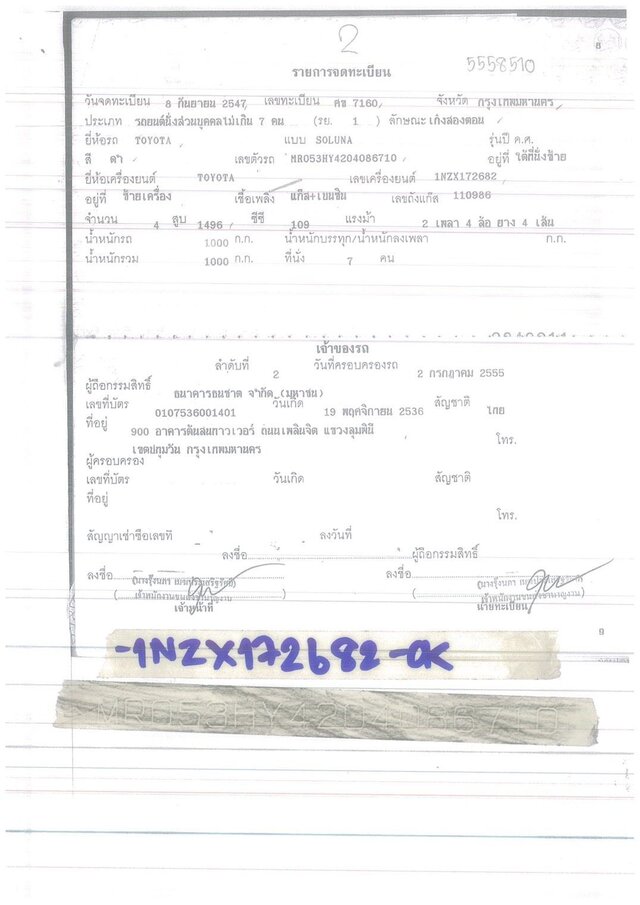 2
5558510
8
รายการจดทะเบียน
วันจดทะเบียน 8 กันยายน 2547 เลขทะเบียน ศข 7160 จังหวัด กรุงเทพมหานคร
ประเภท รถยนต์นั่งส่วนบุคคลไม่เกิน 7 คน (รย. 1 ) ลักษณะ เก๋งสองตอน
ยี่ห้อรถ TOYOTA แบบ SOLUNA รุ่นปี ค.ศ.
สี ดำ เลขตัวรถ MR053HY4204086710 อยู่ที่ ใต้ที่นั่งซ้าย
ยี่ห้อเครื่องยนต์ TOYOTA เลขเครื่องยนต์ 1NZX172682
อยู่ที่ ซ้ายเครื่อง เชื้อเพลิง แก๊ส+เบนซิน เลขถังแก๊ส 110986
จำนวน 4 สูบ 1496 ซีซี 109 แรงม้า 2 เพลา 4 ล้อ ยาง 4 เส้น
น้ำหนักรถ 1000 ก.ก. น้ำหนักบรรทุก/น้ำหนักลงเพลา ก.ก.
น้ำหนักรวม 1000 ก.ก. ที่นั่ง 7 คน
เจ้าของรถ
ลำดับที่ 2 วันที่ครอบครองรถ 2 กรกฎาคม 2555
ผู้ถือกรรมสิทธิ์ ธนาคารธนชาต จำกัด (มหาชน)
เลขที่บัตร 0107536001401 วันเกิด 19 พฤศจิกายน 2536 สัญชาติ ไทย
ที่อยู่ 900 อาคารต้นสนทาวเวอร์ ถนนเพลินจิต แขวงลุมพินี
เขตปทุมวัน กรุงเทพมหานคร โทร.
ผู้ครอบครอง
เลขที่บัตร วันเกิด สัญชาติ
ที่อยู่
โทร.
สัญญาเช่าซื้อเลขที่ ลงวันที่
ลงชื่อ ผู้ถือกรรมสิทธิ์
ลงชื่อ ลงชื่อ
เจ้าหน้าที่ นายทะเบียน
-1NZX172682-OK
MR053HY4204086710